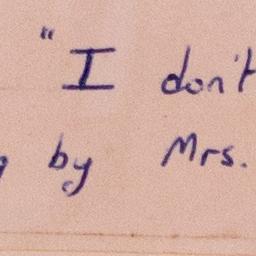 "I don't
by Mrs.